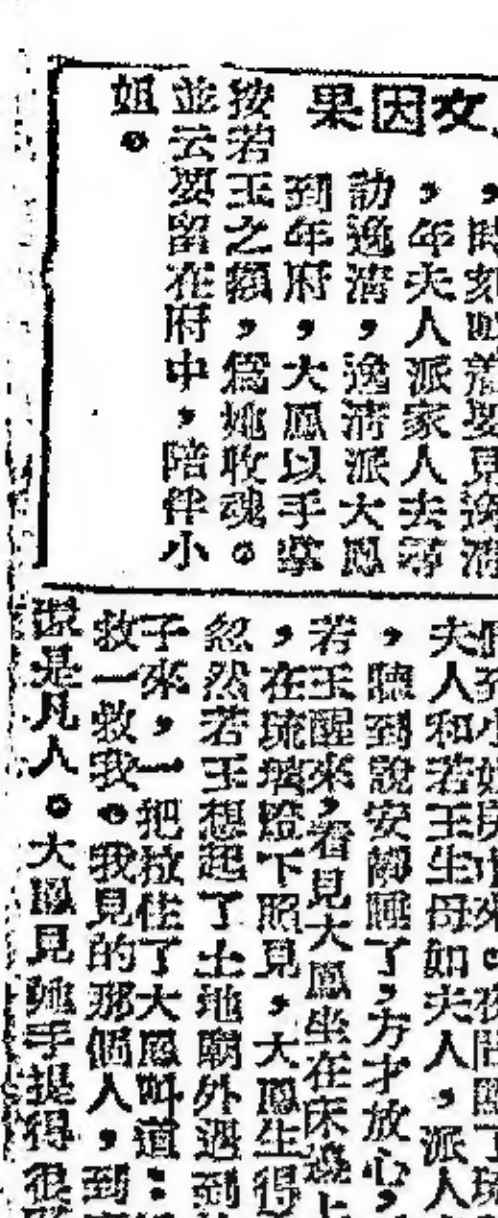 文因果
，時刻叫着要見逸清
，年夫人派家人去尋
訪逸清，逸清派大鳳
到年府，大鳳以手掌
按若玉之額，爲她收魂。
並云要留在府中，陪伴小
姐。
夫人和若玉生母如夫人，派人
，聽到說安靜睡了，方才放心，
若玉醒來，看見大鳳坐在床邊上
，在琉璃燈下照見，大鳳生得
忽然若玉想起了土地廟外遇到
子來，一把拉住了大鳳叫道：
救一救我。我見的那個人，到
還是凡人。大鳳見她手提得很